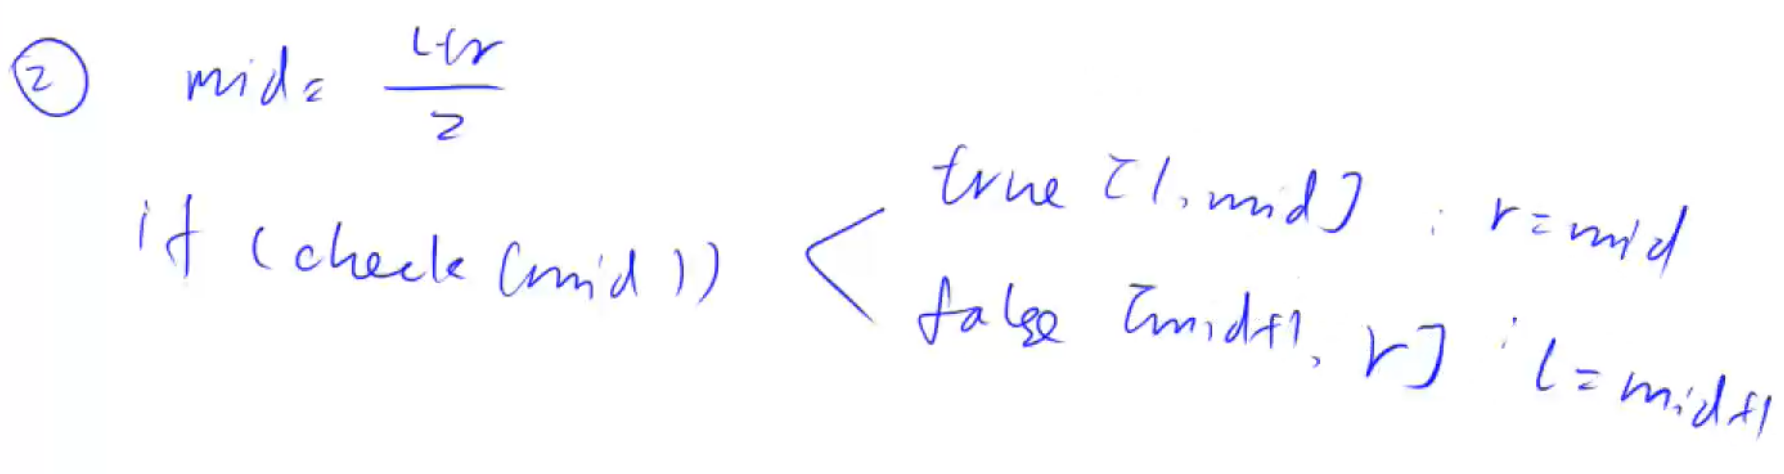 ② mid = l+r
2
if (check(mid))
true [l, mid] : r=mid
false [mid+1, r] : l=mid+1